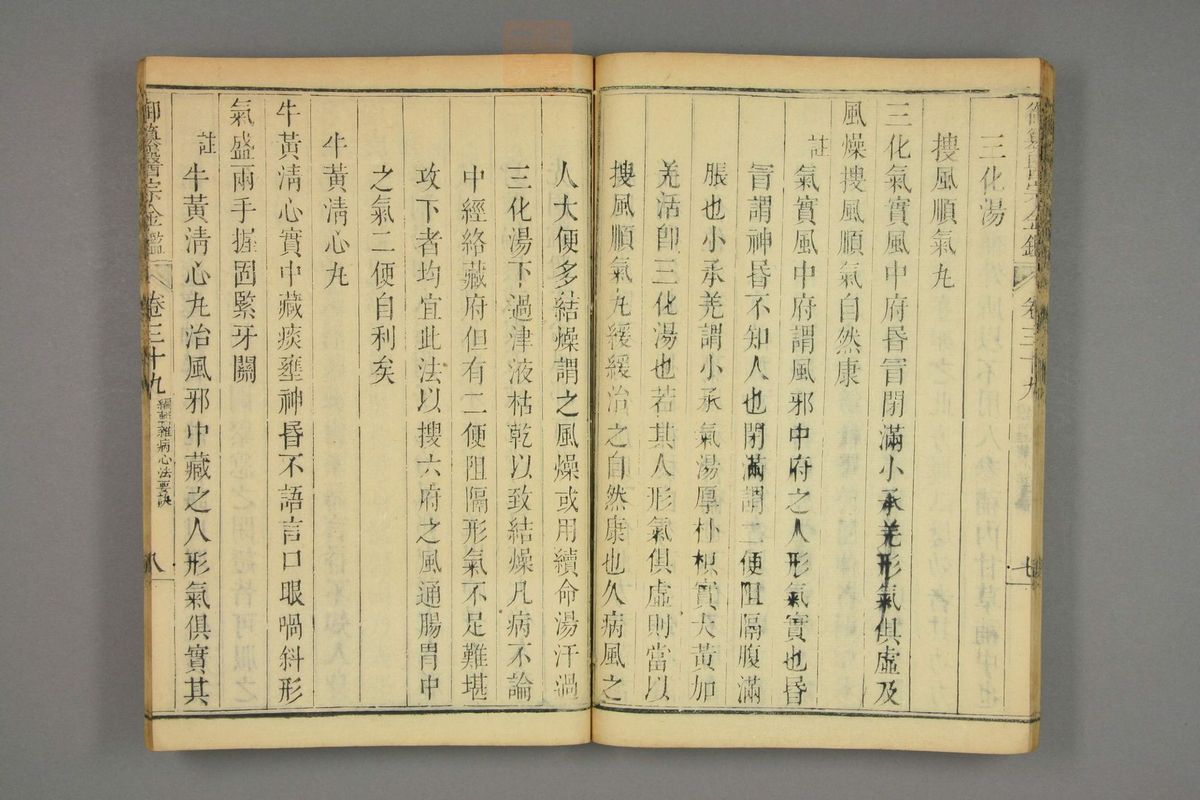 三化湯
搜風順氣丸
三化氣實風中府昏冒閉滿小承羌形氣俱虛及
風燥搜風順氣自然康
註
氣實風中府謂風邪中府之人形氣實也昏
冒謂神昏不知人也閉滿謂二便阻隔腹滿
脹也小承羌謂小承氣湯厚朴枳實大黃加
羌活卽三化湯也若其人形氣俱虛則當以
搜風順氣丸緩緩治之自然康也久病風之
卷三十九
七
人大便多結燥謂之風燥或用續命湯汗過
三化湯下過津液枯乾以致結燥凡病不論
中經絡藏府但有二便阻隔形氣不足難堪
攻下者均宜此法以搜六府之風通腸胃中
之氣二便自利矣
牛黃淸心丸
牛黃淸心實中藏痰壅神昏不語言口眼喎斜形
氣盛兩手握固緊牙關
註
牛黃淸心丸治風邪中藏之人形氣俱實其
御纂醫宗金鑑
卷三十九
編輯雜病心法要訣
八